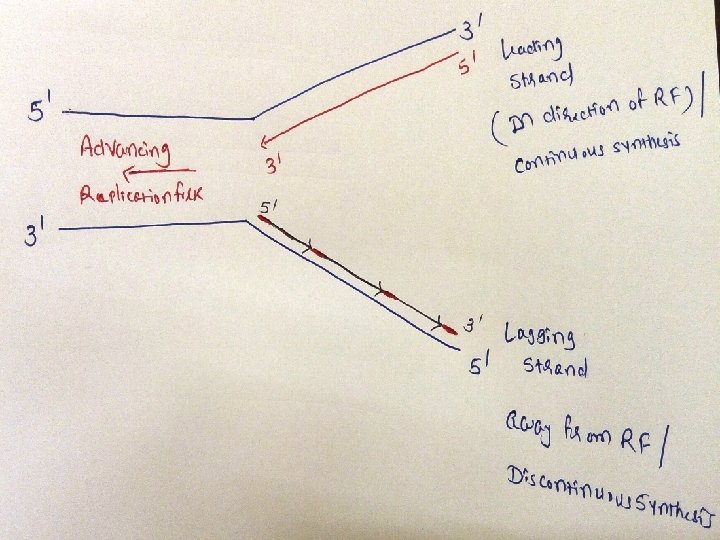 3'
5'
Leading
Strand
(In direction of RF)/
continuous synthesis
5'
Advancing
Replication fork
3'
3'
5'
3'
5'
Lagging
Strand
Away from RF/
Discontinuous Synthesis